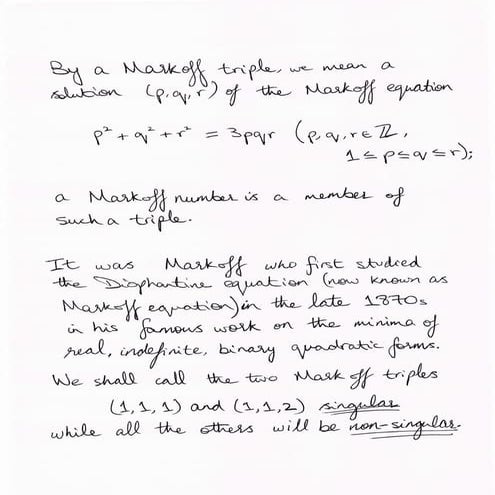 By a Markoff triple, we mean a
solution (p, q, r) of the Markoff equation
p² + q² + r² = 3pqr (p, q, r ∈ ℤ,
1 ≤ p ≤ q ≤ r);
a Markoff number is a member of
such a triple.
It was Markoff who first studied
the Diophantine equation (now known as
Markoff equation) in the late 1870s
in his famous work on the minima of
real, indefinite, binary quadratic forms.
We shall call the two Markoff triples
(1, 1, 1) and (1, 1, 2) singular
while all the others will be non-singular.